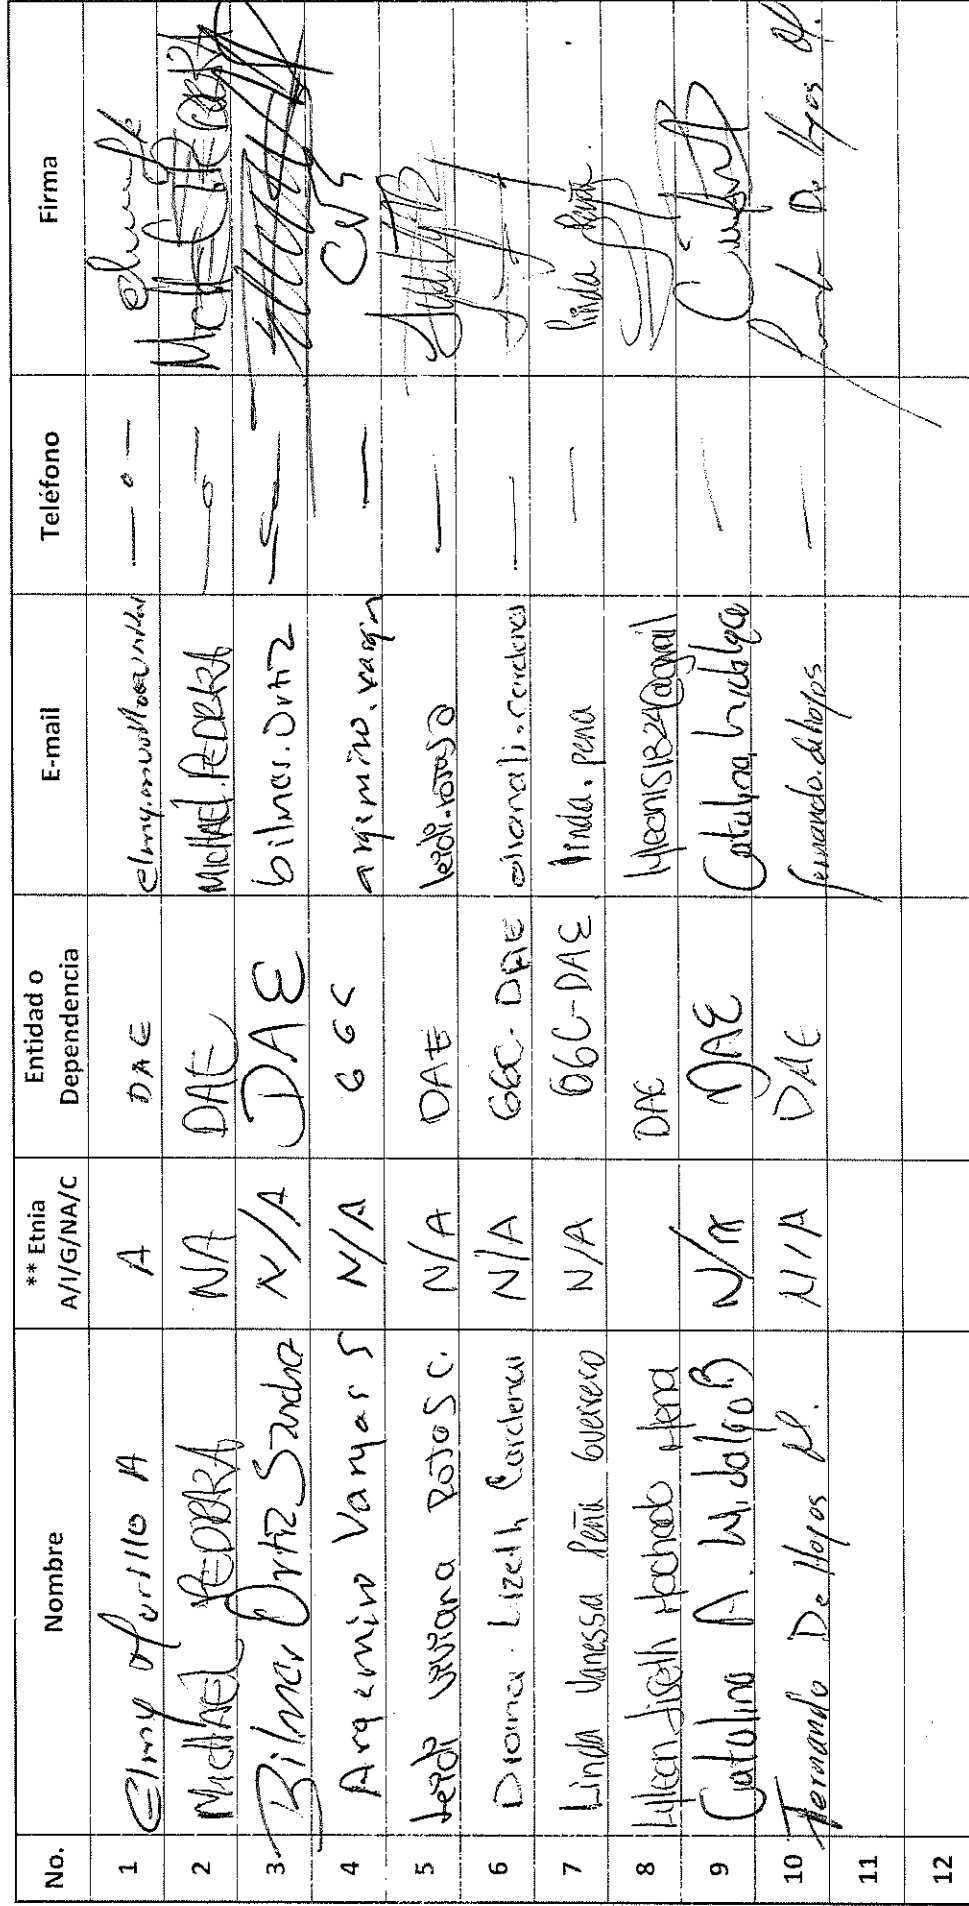 No. Nombre ** Etnia A/I/G/NA/C Entidad o Dependencia E-mail Teléfono Firma
1 Elmy Murillo A A DAE — o —
2 MichAEL PEDRAZA NA DAE MichAEL.PEDRAZA — o —
3 Bilmar Ortiz Sandra N/A DAE bilmar.ortiz — o —
4 Argemiro Vargas S N/A GGC argemiro.vargas —
5 Leidi Viviana Rojas C. N/A DAE leidi.rojas —
6 Diana Lizeth Cardenas N/A GGC-DAE —
7 Linda Vanessa Peña Guerrero N/A GGC-DAE linda.pena — Linda Peña.
8 Lylean Liseth Machado Mena DAE
9 Catalina A. Hidalgo B N/A DAE Catalina.hidalgo —
10 Fernando De Hoyos M. N/A DAE fernando.dehoyos — Fernando De Hoyos M.
11
12